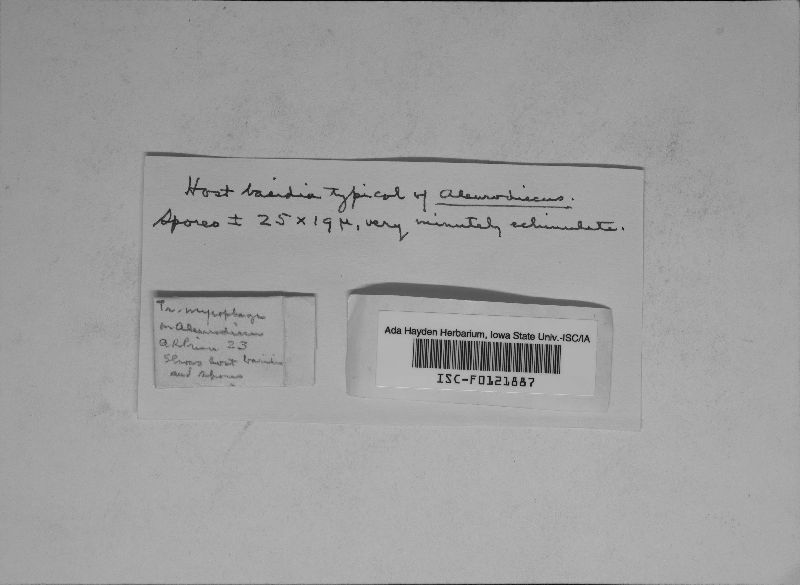 Host basidia typical of Aleurodiscus.
Spores ± 25 × 19 μ, very minutely echinulate.
Tr. mycophaga
on Aleurodiscus
23
Shows host basidia
and spores
Ada Hayden Herbarium, Iowa State Univ.-ISC/IA
ISC-F0121887